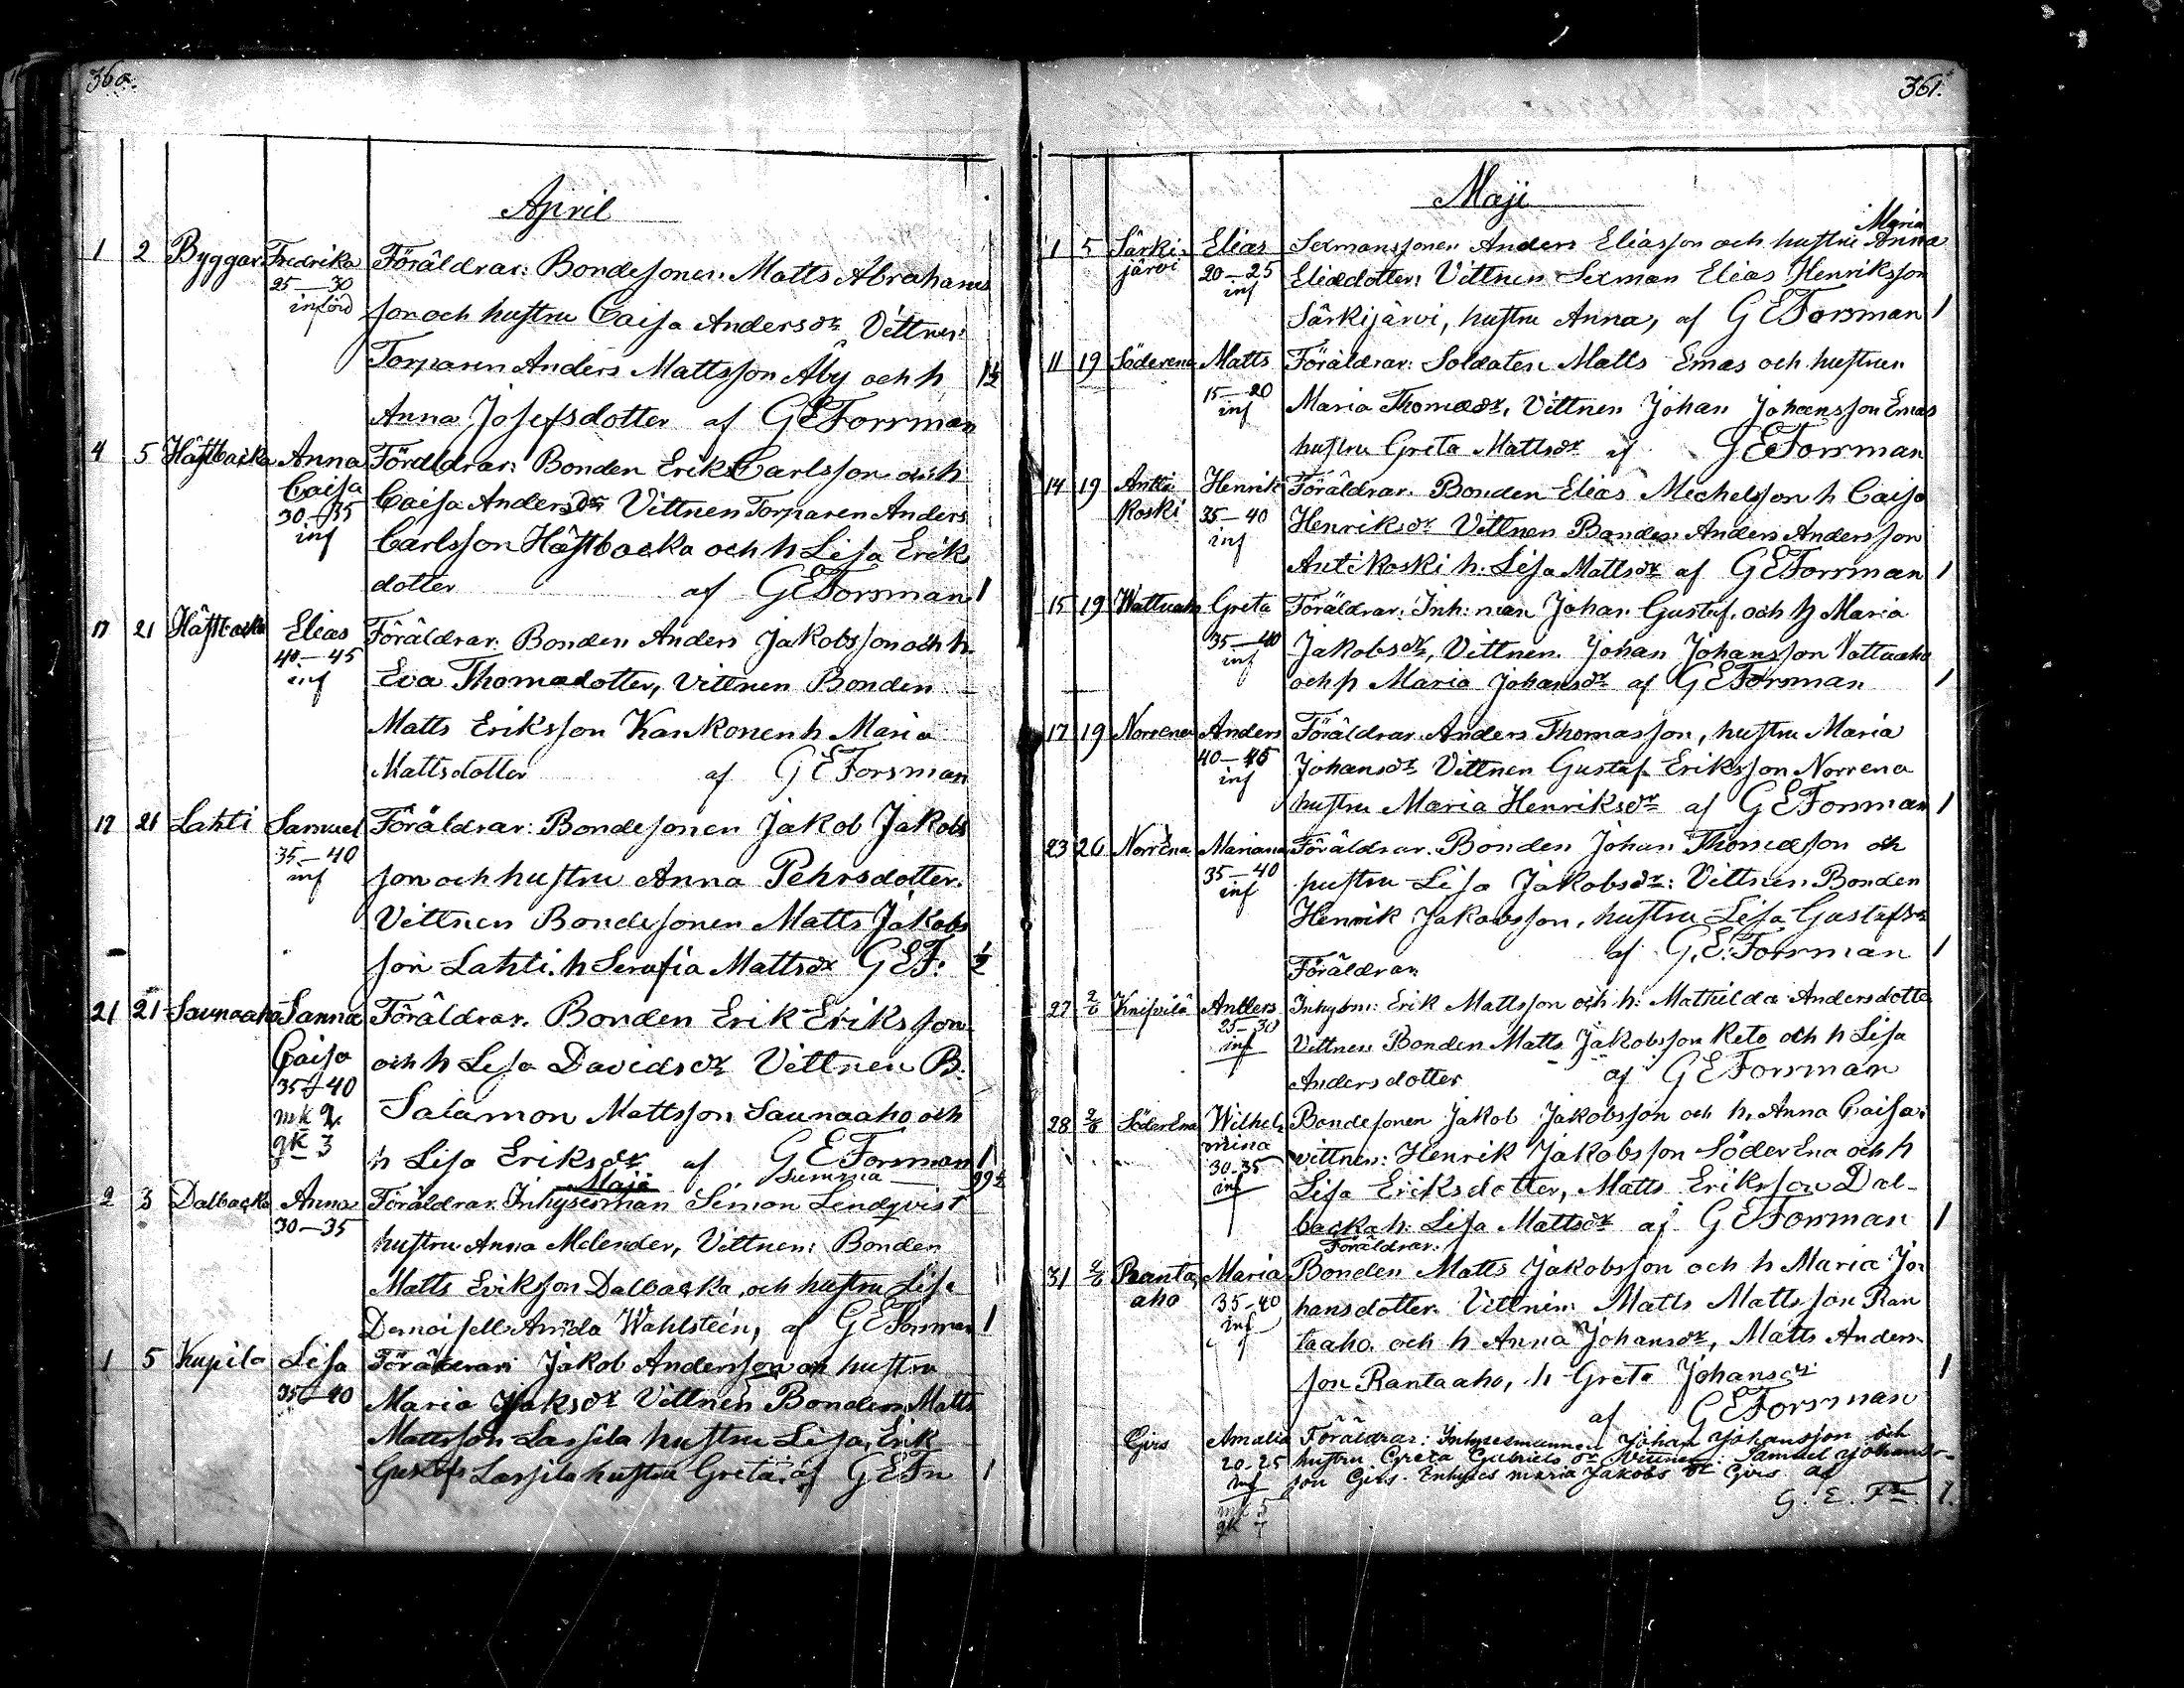 360.
April
1 2 Byggar Fredrika Föräldrar: Bondesonen Matts Abrahams
25—30
införd son och hustru Caisa Anders dr Vittnen:
Torparen Anders Mattsson Åby och h 1½
Anna Josefsdotter af G E Forsman
4 5 Hästbacka Anna Föräldrar: Bonden Erik Carlsson och h
Caisa Caisa Anders dr Vittnen Torparen Anders
30—35
inf Carlsson Hästbacka och h Lisa Erik
dotter af G E Forsman 1
17 21 Hästbacka Elias Föräldrar: Bonden Anders Jakobsson och h.
40—45
inf Eva Thomasdotter, Vittnen Bonden
Matts Eriksson Kankonen h Maria
Mattsdotter af G E Forsman
17 21 Lahti Samuel Föräldrar: Bondesonen Jakob Jakobs
35—40
inf son och hustru Anna Pehrsdotter.
Vittnen Bondesonen Matts Jakobs
son Lahti. h Serafia Matts dr G E F. ½
21 21 Saunaaho Sanna Föräldrar. Bonden Erik Eriksson
Caisa och h Lisa Davids dr Vittnen B.
35—40
mk 2 Salamon Mattsson Saunaaho och
qk 3 h Lisa Eriks dr af G E Forsman 1
Summa
Maji
2 3 Dalbacka Anna Föräldrar. Inhysesman Simon Lindqvist
30—35
hustru Anna Melender, Vittnen: Bonden
Matts Eriksson Dalbacka, och hustru Lisa
Demoisell Amda Wahlstein, af G E Forsman 1
1 5 Kupila Lisa Föräldrar: Jakob Andersson och hustru
35—40 Maria Jaks dr Vittnen Bonden Matts
Mattsson Lassila hustru Lisa, Erik
Gustafs Lassila hustru Greta. af G E Fn 1
361.
Maji
Maria
1 5 Särki- Elias Sexmanssonen Anders Eliasson och hustru Anna
järvi 20—25 Eliedotter: Vittnen Sexman Elias Henriksson
inf
Särkijärvi, hustru Anna, af G E Forsman 1
11 19 Söderena Matts Föräldrar: Soldaten Matts Emas och hustrun
15—20
inf Maria Thomas dr, Vittnen Johan Johansson Emas
hustru Greta Matts dr af G E Forsman
14 19 Antti Henrik Föräldrar. Bonden Elias Michelsson h Caisa
koski 35—40
inf Henriks dr Vittnen Bonden Anders Andersson
Antikoski h. Lisa Matts dr af G E Forsman 1
15 19 Wattuaho Greta Föräldrar. Inh: man Johan Gustaf. och h Maria
35—40
inf Jakobs dr, Vittnen. Johan Johansson Vattuaho
och h Maria Johans dr af G E Forsman 1
17 19 Norrena Anders Föräldrar Anders Thomasson, hustru Maria
40—45
inf Johans dr Vittnen Gustaf Eriksson Norrena
hustru Maria Henriks dr af G E Forsman 1
23 26 Norrena Mariana Föräldrar. Bonden Johan Thomasson och
35—40
inf hustru Lisa Jakobs dr: Vittnen Bonden
Henrik Jakobsson, hustru Lisa Gustafs dr
af G. E. Forsman 1
Föräldrar.
27 2/6 Knifvilä Anders Inhysm: Erik Mattsson och h: Mathilda Andersdotter
25—30
inf Vittnen Bonden Matts Jakobsson Keto och h Lisa
Andersdotter af G E Forsman
28 2/6 SöderEna Wilhel- Bondesonen Jakob Jakobsson och h. Anna Caisa.
mina vittnen: Henrik Jakobsson SöderEna och h
30-35
inf Lisa Eriksdotter, Matts Eriksson Dal-
backa h. Lisa Matts dr af G E Forsman 1
Föräldrar.
31 2/6 Ranta Maria Bonden Matts Jakobsson och h Maria Jo-
aho 35-40 hansdotter. Vittnen: Matts Mattsson Ran
inf
taaho. och h Anna Johans dr, Matts Anders-
son Rantaaho, h Greta Johans dr 1
af G E Forsman
Girs Amalia Föräldrar: Inhysesmannen Johan Johansson och
20-25 hustru Greta Gabriels dr Vittnen: Samuel Johans-
inf son Girs. Inhyses Maria Jakobs dr Girs af
mk 5 G. E. Fn. 1.
qk 7